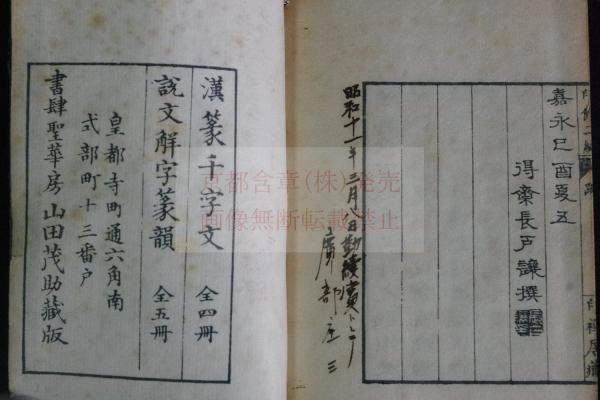 嘉永己酉夏五
得齋長戸讓撰
昭和十一年三月
漢篆千字文 全四冊
說文解字篆韻 全五冊
皇都寺町通六角南
式部町十三番戸
書肆聖華房山田茂助藏版
京都含章(株)発売
画像無断転載禁止